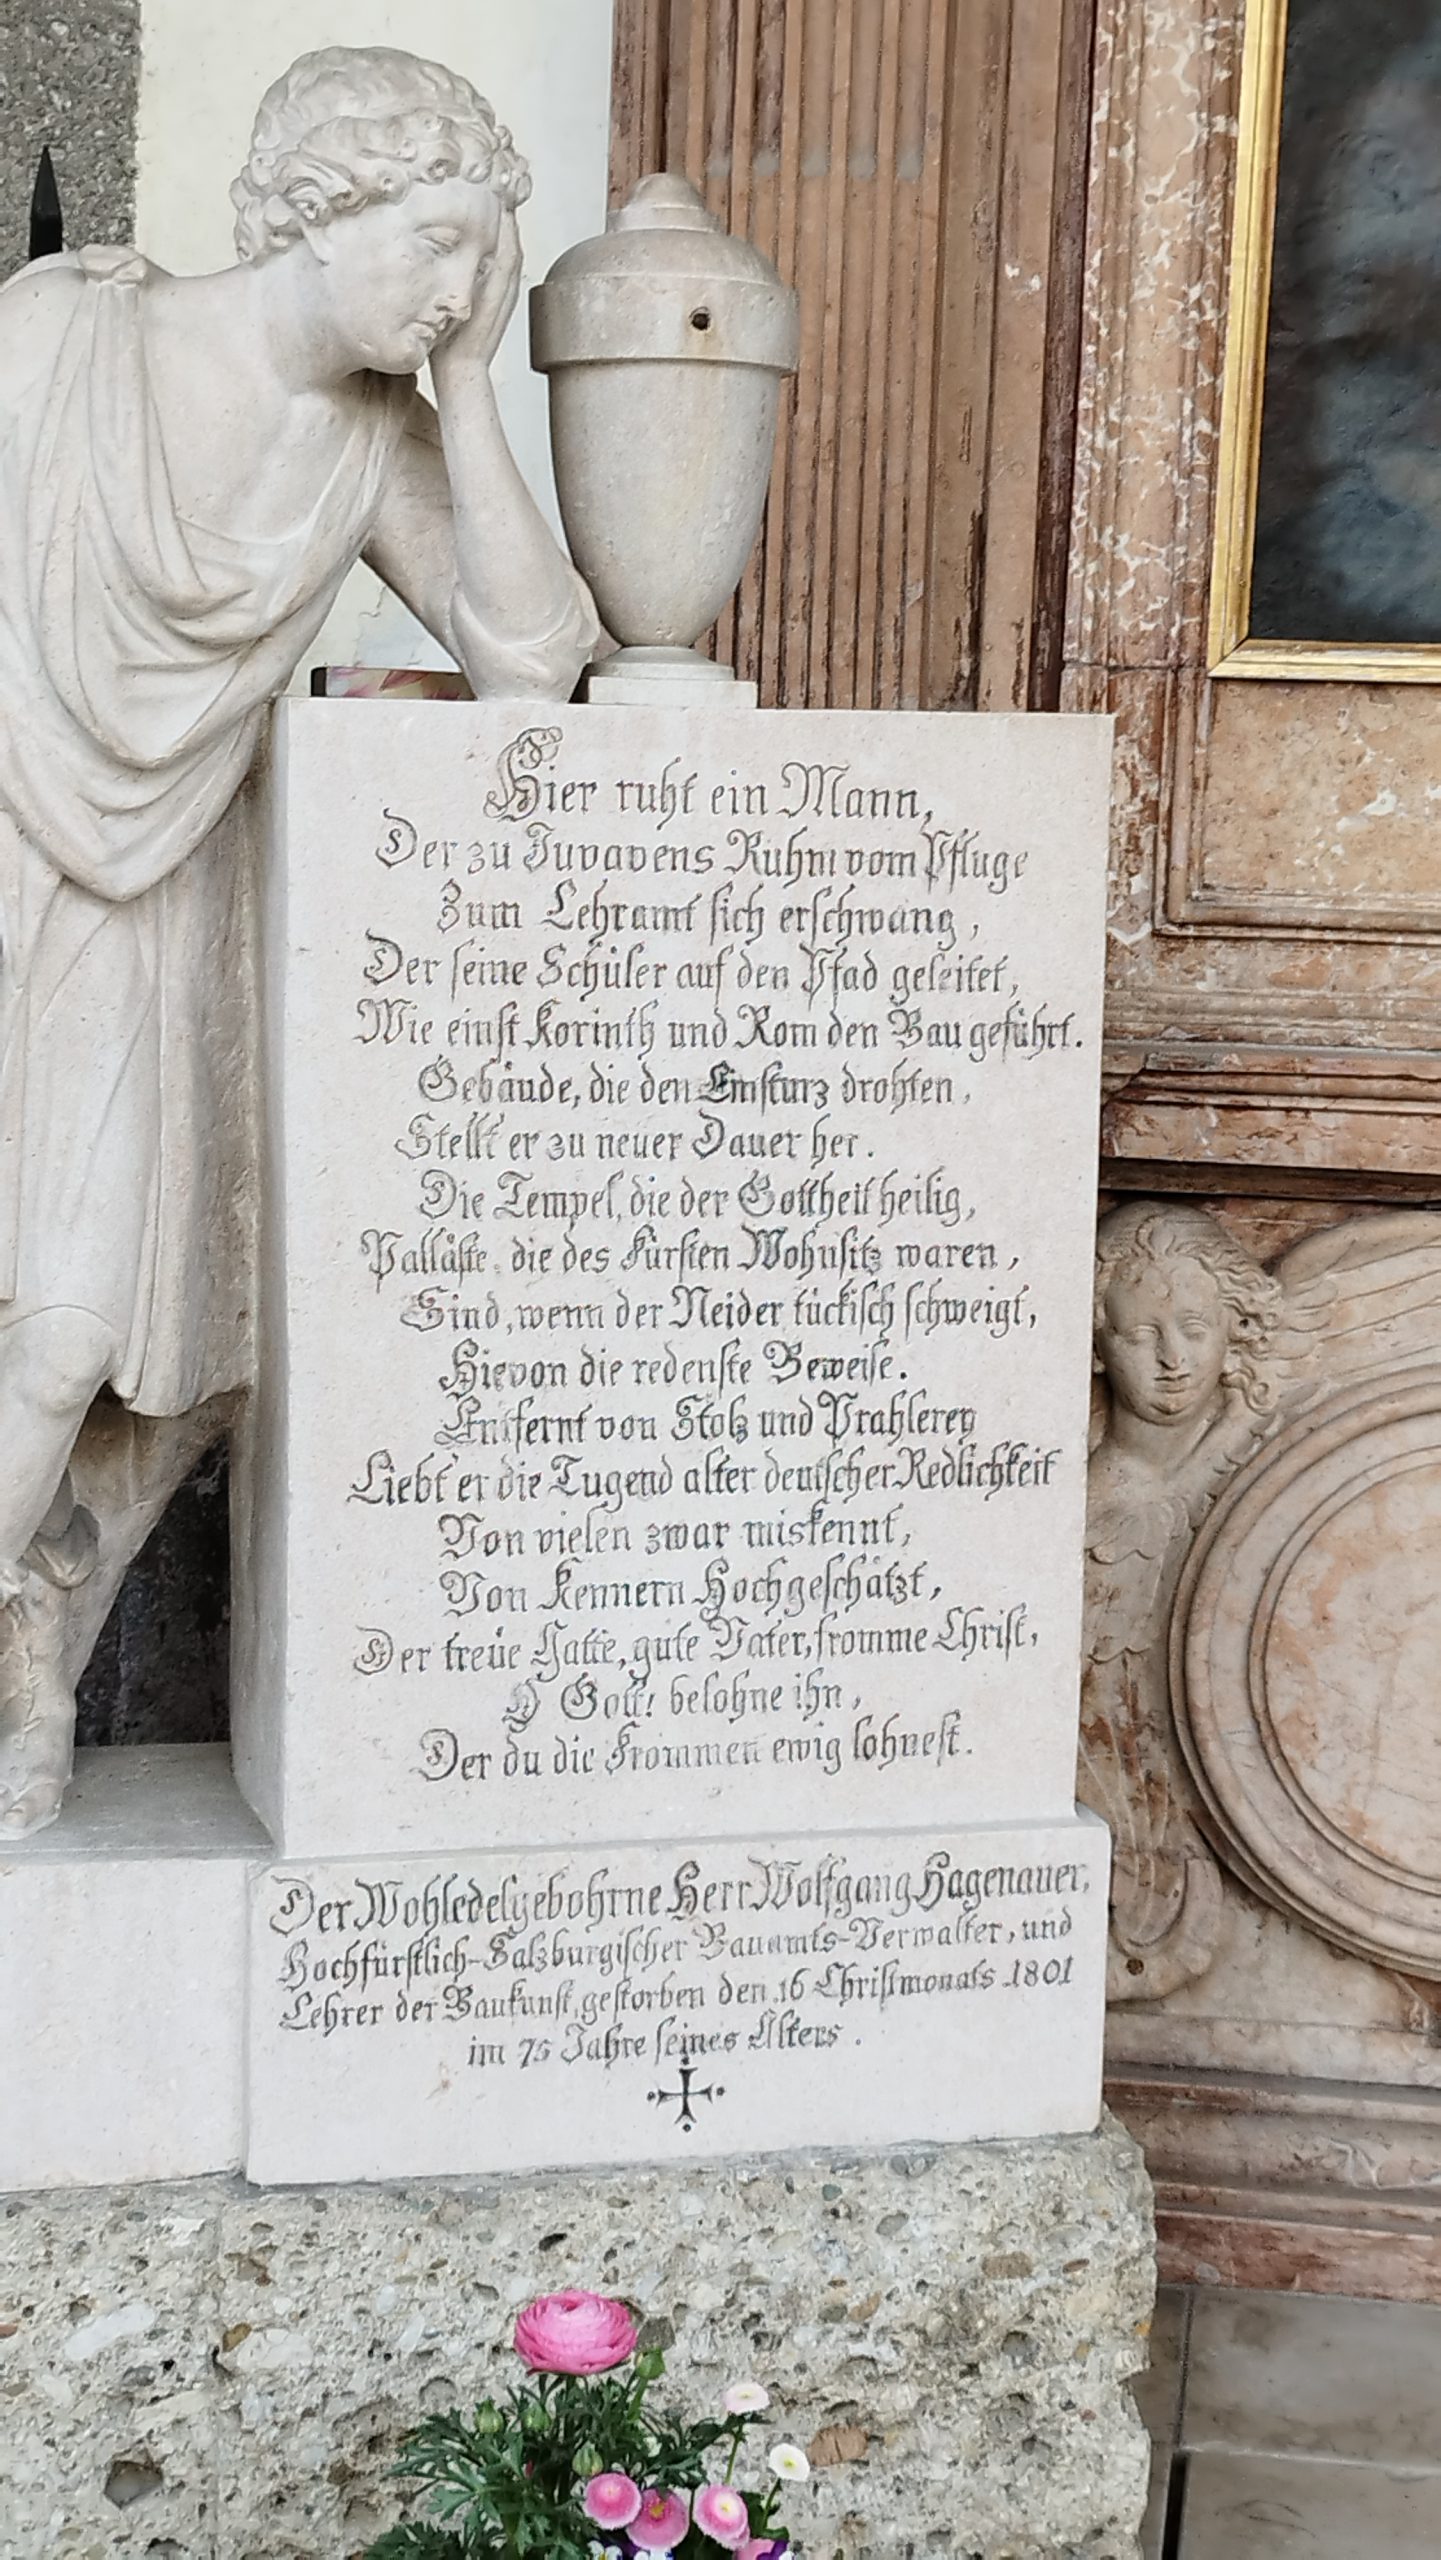 Hier ruht ein Mann,
Der zu Juvavens Ruhm vom Pfluge
Zum Lehramt sich erschwang,
Der seine Schüler auf den Pfad geleitet,
Wie einst Korinth und Rom den Bau geführt.
Gebäude, die den Einsturz drohten,
Stellt' er zu neuer Dauer her.
Die Tempel, die der Gottheit heilig,
Palläste, die des Fürsten Wohnsitz waren,
Sind, wenn der Neider tückisch schweigt,
Hievon die redenste Beweise.
Entfernt von Stolz und Prahlerey
Liebt' er die Tugend alter deutscher Redlichkeit
Von vielen zwar miskennt,
Von Kennern Hochgeschätzt,
Der treüe Gatte, gute Vater, fromme Christ,
O Gott! belohne ihn,
Der du die Frommen ewig lohnest.
Der Wohledelgebohrne Herr Wolfgang Hagenauer,
Hochfürstlich-Salzburgischer Bauamts-Verwalter, und
Lehrer der Baukunst, gestorben den 16 Christmonats 1801
im 75 Jahre seines Alters.